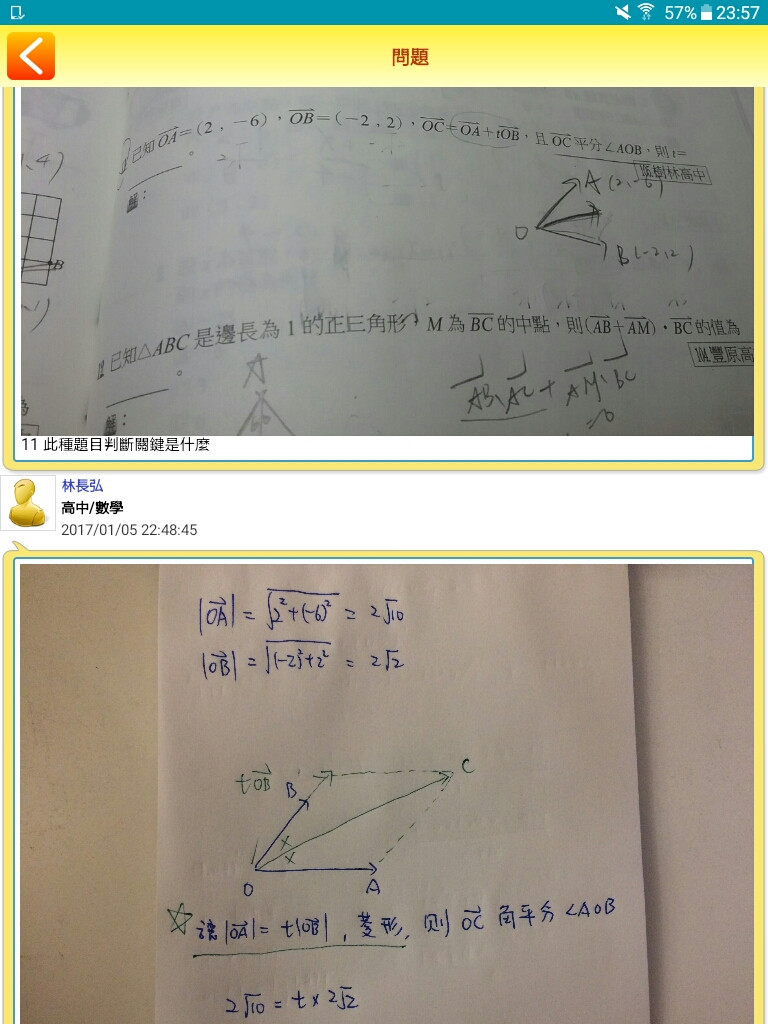 57% 23:57
問題
已知OA=(2,-6),OB=(-2,2),OC=OA+tOB,且OC平分∠AOB,則t=
。
106.樹林高中
解:
A(2,-6)
O
B(-2,2)
B
12 已知△ABC是邊長為1的正三角形,M為BC的中點,則(AB+AM)·BC的值為
。
104.豐原高
AB·AC+AM·BC
=0
A
解:
11 此種題目判斷關鍵是什麼
林長弘
高中/數學
2017/01/05 22:48:45
|OA| = √2²+(-6)² = 2√10
|OB| = √(-2)²+2² = 2√2
tOB
B
C
x
x
O
A
☆ 讓|OA|= t|OB|, 菱形, 則 OC 角平分 ∠AOB
2√10 = t × 2√2